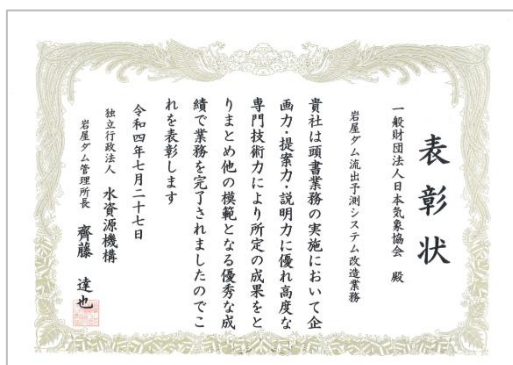 表彰状
一般財団法人日本気象協会 殿
岩屋ダム流出予測システム改造業務
貴社は頭書業務の実施において企
画力・提案力・説明力に優れ高度な
専門技術力により所定の成果をと
りまとめ他の模範となる優秀な成
績で業務を完了されましたのでこ
れを表彰します
令和四年七月二十七日
独立行政法人 水資源機構
岩屋ダム管理所長 齊藤 達也